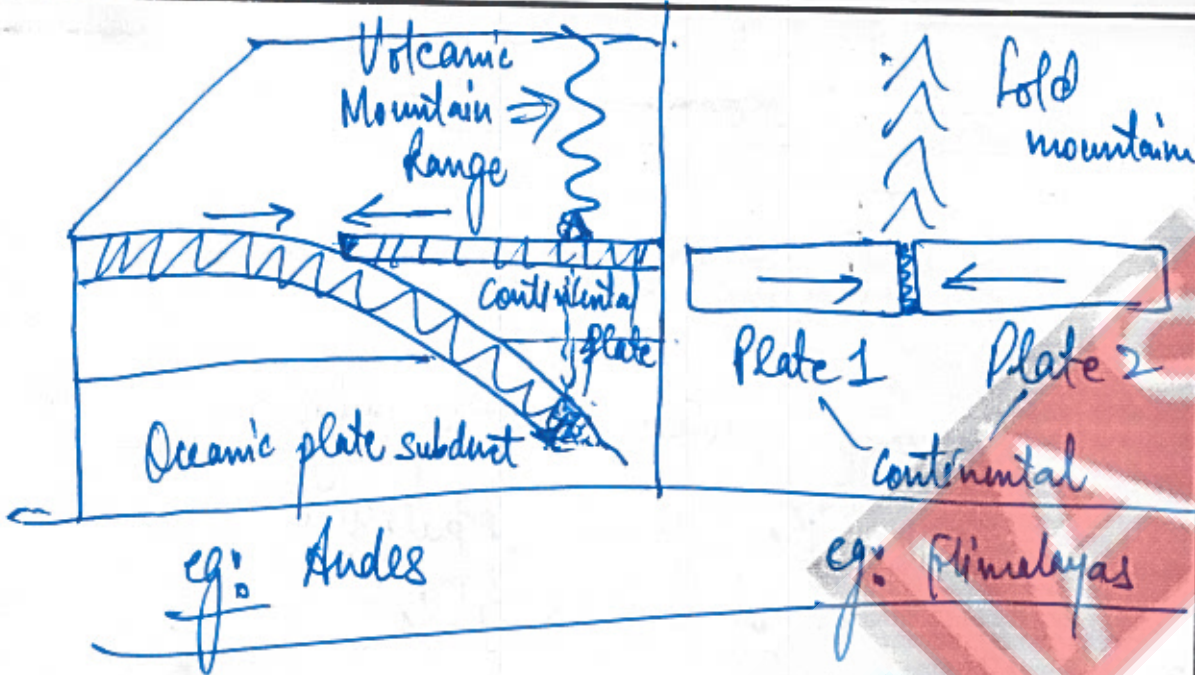 Volcanic
Mountain
Range
Continental
Plate
Oceanic plate subduct
eg: Andes
Fold
mountain
Plate 1 Plate 2
Continental
eg: Himalayas